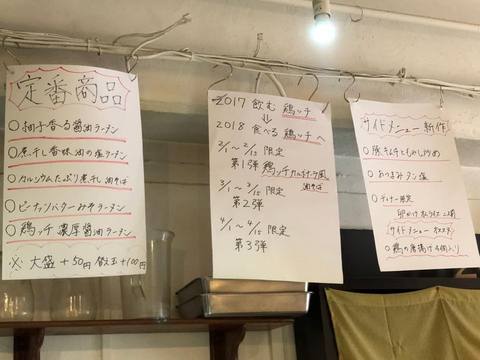 定番商品
○柚子香る醤油ラーメン
○煮干し香味油の塩ラーメン
○カルシウムたっぷり煮干し油そば
○ピーナッツバターみそラーメン
○鶏ッチ濃厚醤油ラーメン
※大盛+50円 替え玉+100円
2017 飲む 鶏ッチ
⇓
2018 食べる 鶏ッチへ
2/1～2/15 限定
第1弾 鶏ッチカルボナーラ風
油そば
3/1～3/15 限定
第2弾
4/1～4/15 限定
第3弾
サイドメニュー新作
○豚キムチともやし炒め
○おつまみタン塩
○ディナー限定
卵かけ
サイドメニューオススメ
○鶏の唐揚げ4個入り